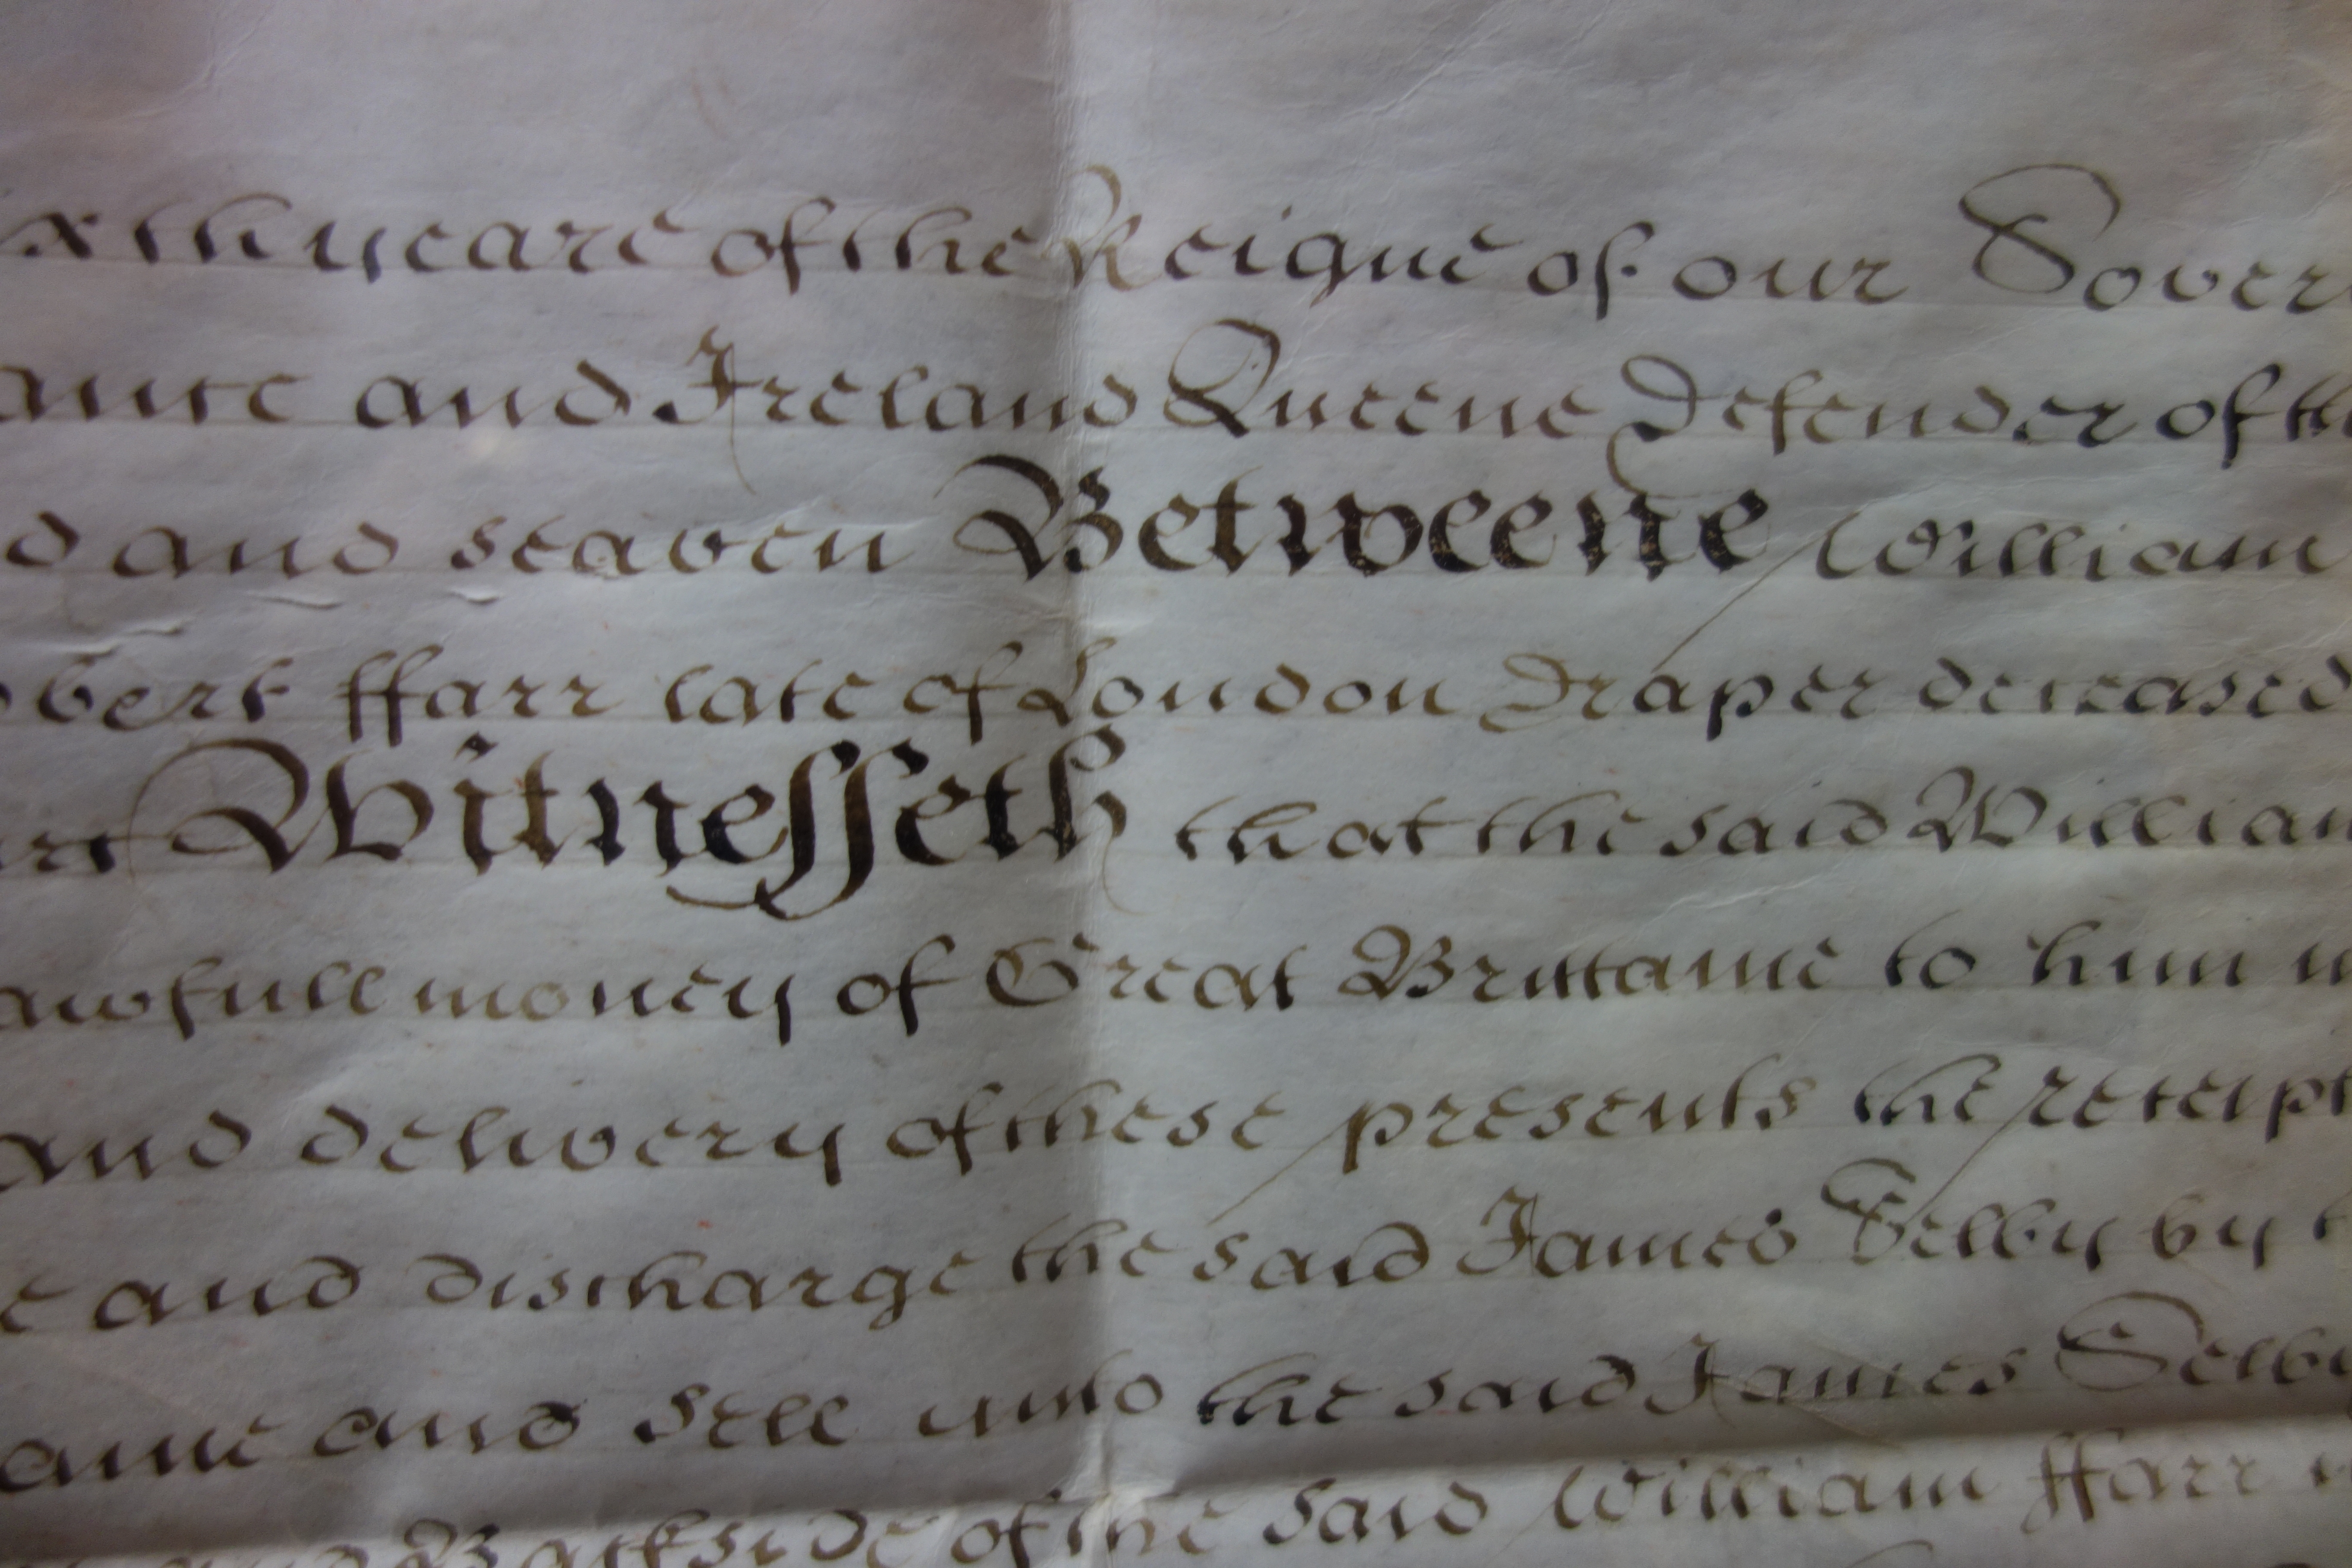 xth yeare of the Reigne of our Sover
and Ireland Queene Defender of th
d and seaven Betweene William
obert ffarr late of London Draper deceased
Witnesseth that the said William
awfull money of Great Brittaine to him
and delivery of these presents the receipt
e and discharge the said James Selby by t
and sell unto the said James Selby
Backside of the said William ffarr